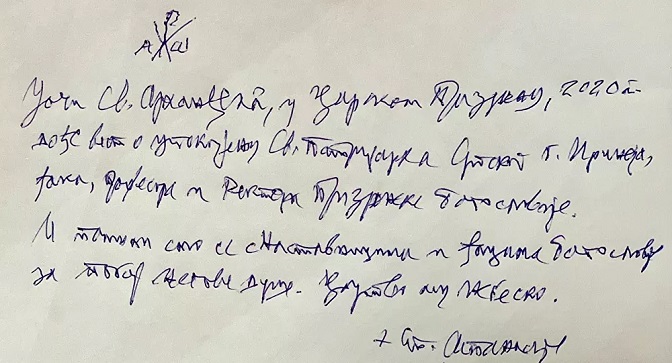 А Р Ѡ
Уочи Св. Арханђела, у Царском Призрену, 2020 г.
дође вест о упокојењу Св. Патријарха Српског г. Иринеја,
ђака, професора и Ректора Призренске богословије.
И помолисмо се с наставницима и ђацима богословије
за покој његове душе. Царство му Небеско.
+ Еп.